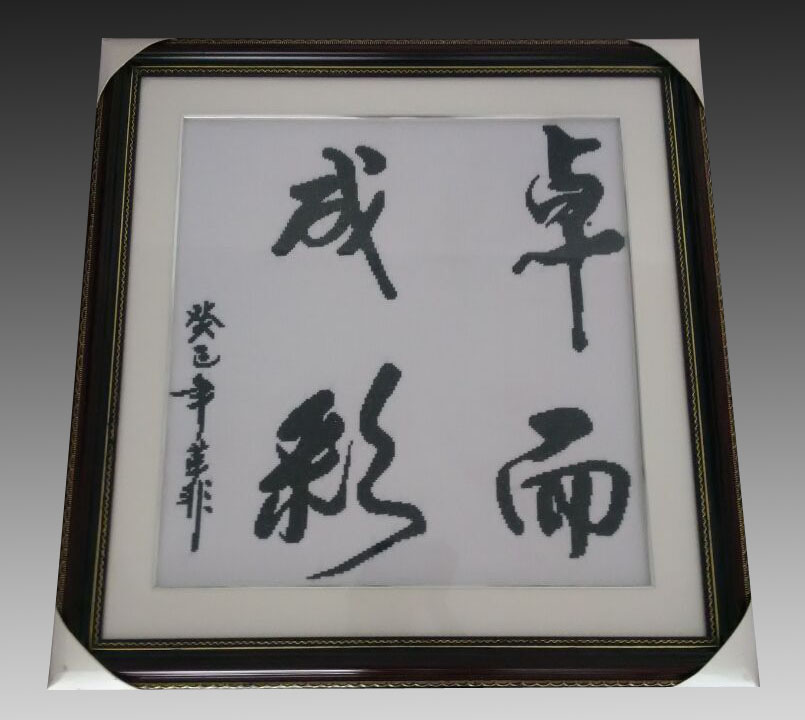 卓而
成彩
癸巳年